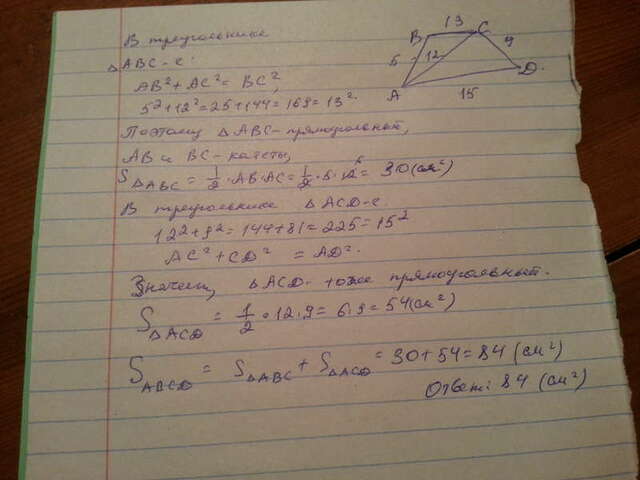 В треугольнике
△ABC-е.
AB²+AC²=BC²,
5²+12²=25+144=169=13².
Поэтому △ABC-прямоугольный,
AB и BC-катеты,
S△ABC = 1/2·AB·AC = 1/2·5·12⁶ = 30(см²)
В треугольнике △ACD-е
12²+9²=144+81=225=15²
AC²+CD² = AD².
Значит, △ACD- тоже прямоугольный.
S△ACD = 1/2·12·9=6·9=54(см²)
S ABCD = S△ABC + S△ACD = 30+54=84 (см²)
Ответ: 84 (см²)
B 13 C
5 12 9
A D.
15